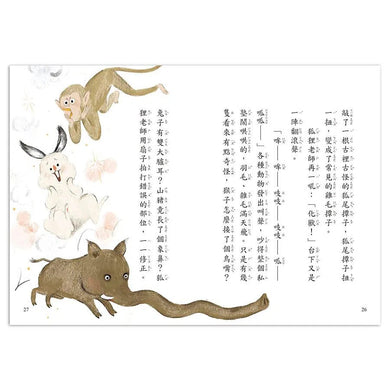 敲了一根古裡古怪的狐尾撢子，狐尾撢子扭
一扭，變成了常見的雞毛撢子。
狐狸老師再一吼：「化獸！」台下又是
一陣翻滾聲。
「咪——咪——吱吱——吱吱——呱
呱呱——」各種動物發出叫聲，吵得整個私
塾鬧哄哄的，羽毛、雜毛滿天飛。只是有幾
隻看來有點奇怪，猴子怎麼後了個鳥嘴？
兔子有雙大臉耳？山豬竟長了個象鼻？狐
狸老師用扇子拍打錯誤的部位，一一修正。
27
26